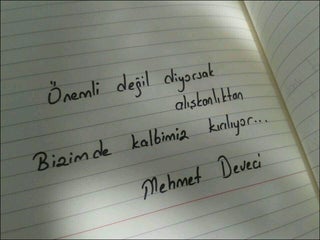 Önemli değil diyorsak
alışkanlıktan
Bizimde kalbimiz kırılıyor...
Mehmet Deveci